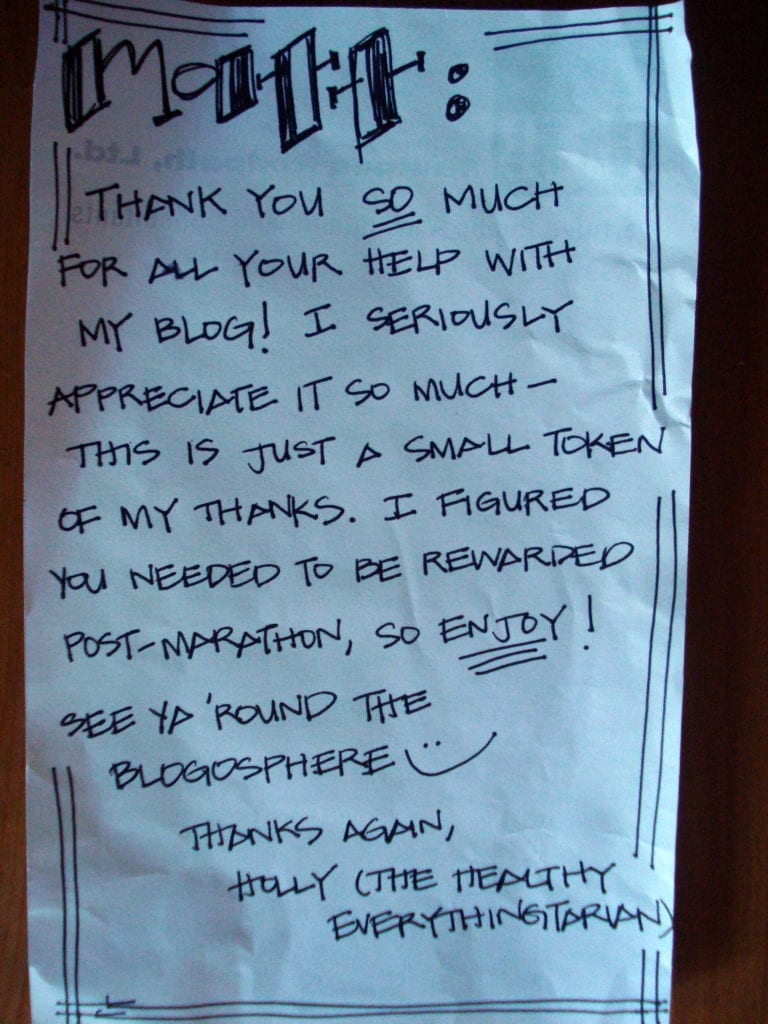 Matt:
THANK YOU SO MUCH
FOR ALL YOUR HELP WITH
MY BLOG! I SERIOUSLY
APPRECIATE IT SO MUCH—
THIS IS JUST A SMALL TOKEN
OF MY THANKS. I FIGURED
YOU NEEDED TO BE REWARDED
POST-MARATHON, SO ENJOY!
SEE YA 'ROUND THE
BLOGOSPHERE
THANKS AGAIN,
HOLLY (THE HEALTHY
EVERYTHINGTARIAN)